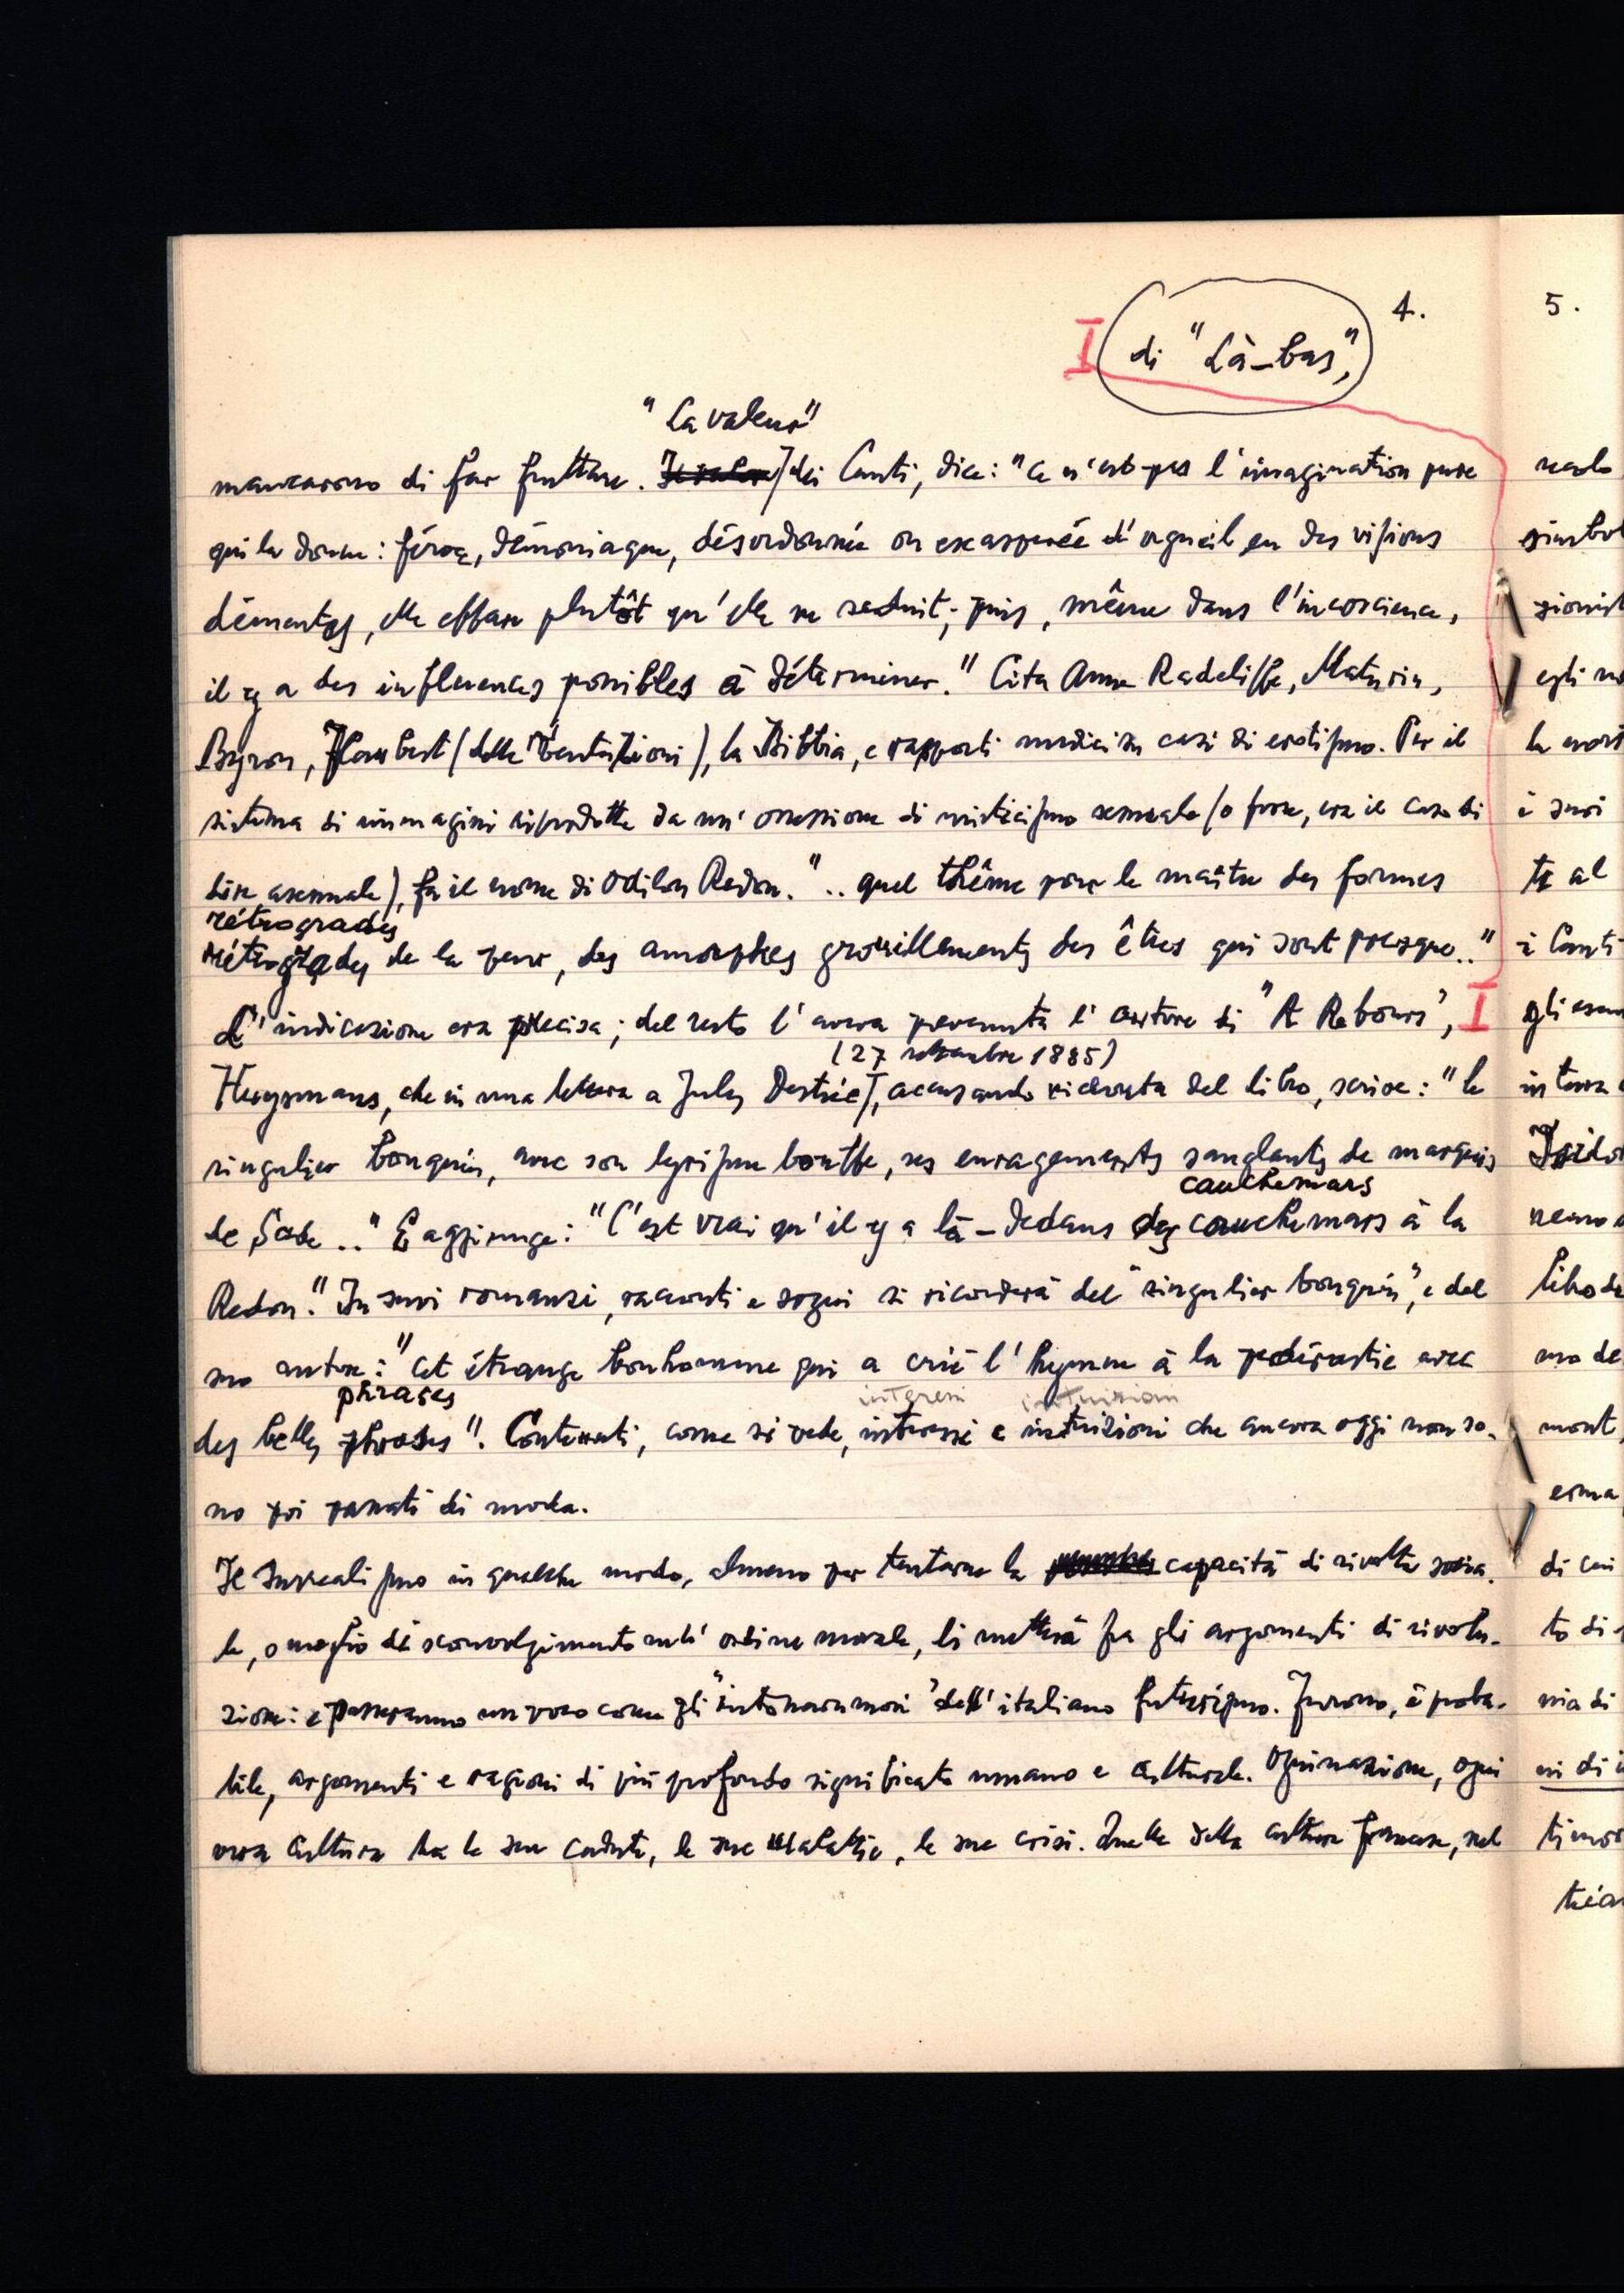 4.
di "Là-bas",
"La valeur"
mancarono di far fruttare. Il valor dei Canti, dice: "Ce n'est pas l'imagination pure
qui la donne: féroce, démoniaque, désordonnée ou exaspérée d'orgueil en des visions
démentes, elle effare plutôt qu'elle ne séduit; puis, même dans l'inconscience,
il y a des influences possibles à déterminer." Cita Anne Radcliffe, Maturin,
Byron, Flaubert (delle Tentazioni), la Bibbia, e rapporti medici su casi di erotismo. Per il
sistema di immagini riprodotte da un'ossessione di misticismo sessuale (o forse, era il caso di
dire asessuale), fa il nome di Odilon Redon. ".. quel thême pour le maître des formes
rétrogrades
rétrogrades de la peur, des amorphes grouillements des êtres qui sont presque.."
L'indicazione era precisa; del resto l'aveva prevenuta l'autore di "A Rebours",
(27 settembre 1885)
Huysmans, che in una lettera a Jules Destrée, accusando ricevuta del libro, scrive: "le
singulier bouquin, avec son lyrisme bouffe, ses enragements sanglants de marquis
cauchemars
de Sade .." E aggiunge: "C'est vrai qu'il y a là-dedans des cauchemars à la
Redon." In suoi romanzi, racconti e sogni si ricorderà del "singulier bouquin", e del
suo autore: "cet étrange bonhomme qui a crié l'hymne à la pédérastie avec
phrases
des belles phrases". Contenuti, come si vede, interessi e intuizioni che ancora oggi non so-
no poi passati di moda.
Il Surrealismo in qualche modo, almeno per tentarne la capacità di rivolta socia-
le, o meglio di sconvolgimento nell'ordine morale, li metterà fra gli argomenti di rivolu-
zione: e passeranno un poco come gli "intonarumori" dell'italiano futurismo. Furono, è proba-
bile, argomenti e ragioni di più profondo significato umano e culturale. Ogni nazione, ogni
vera cultura ha le sue cadute, le sue malattie, le sue crisi. Quelle della cultura francese, nel
5.